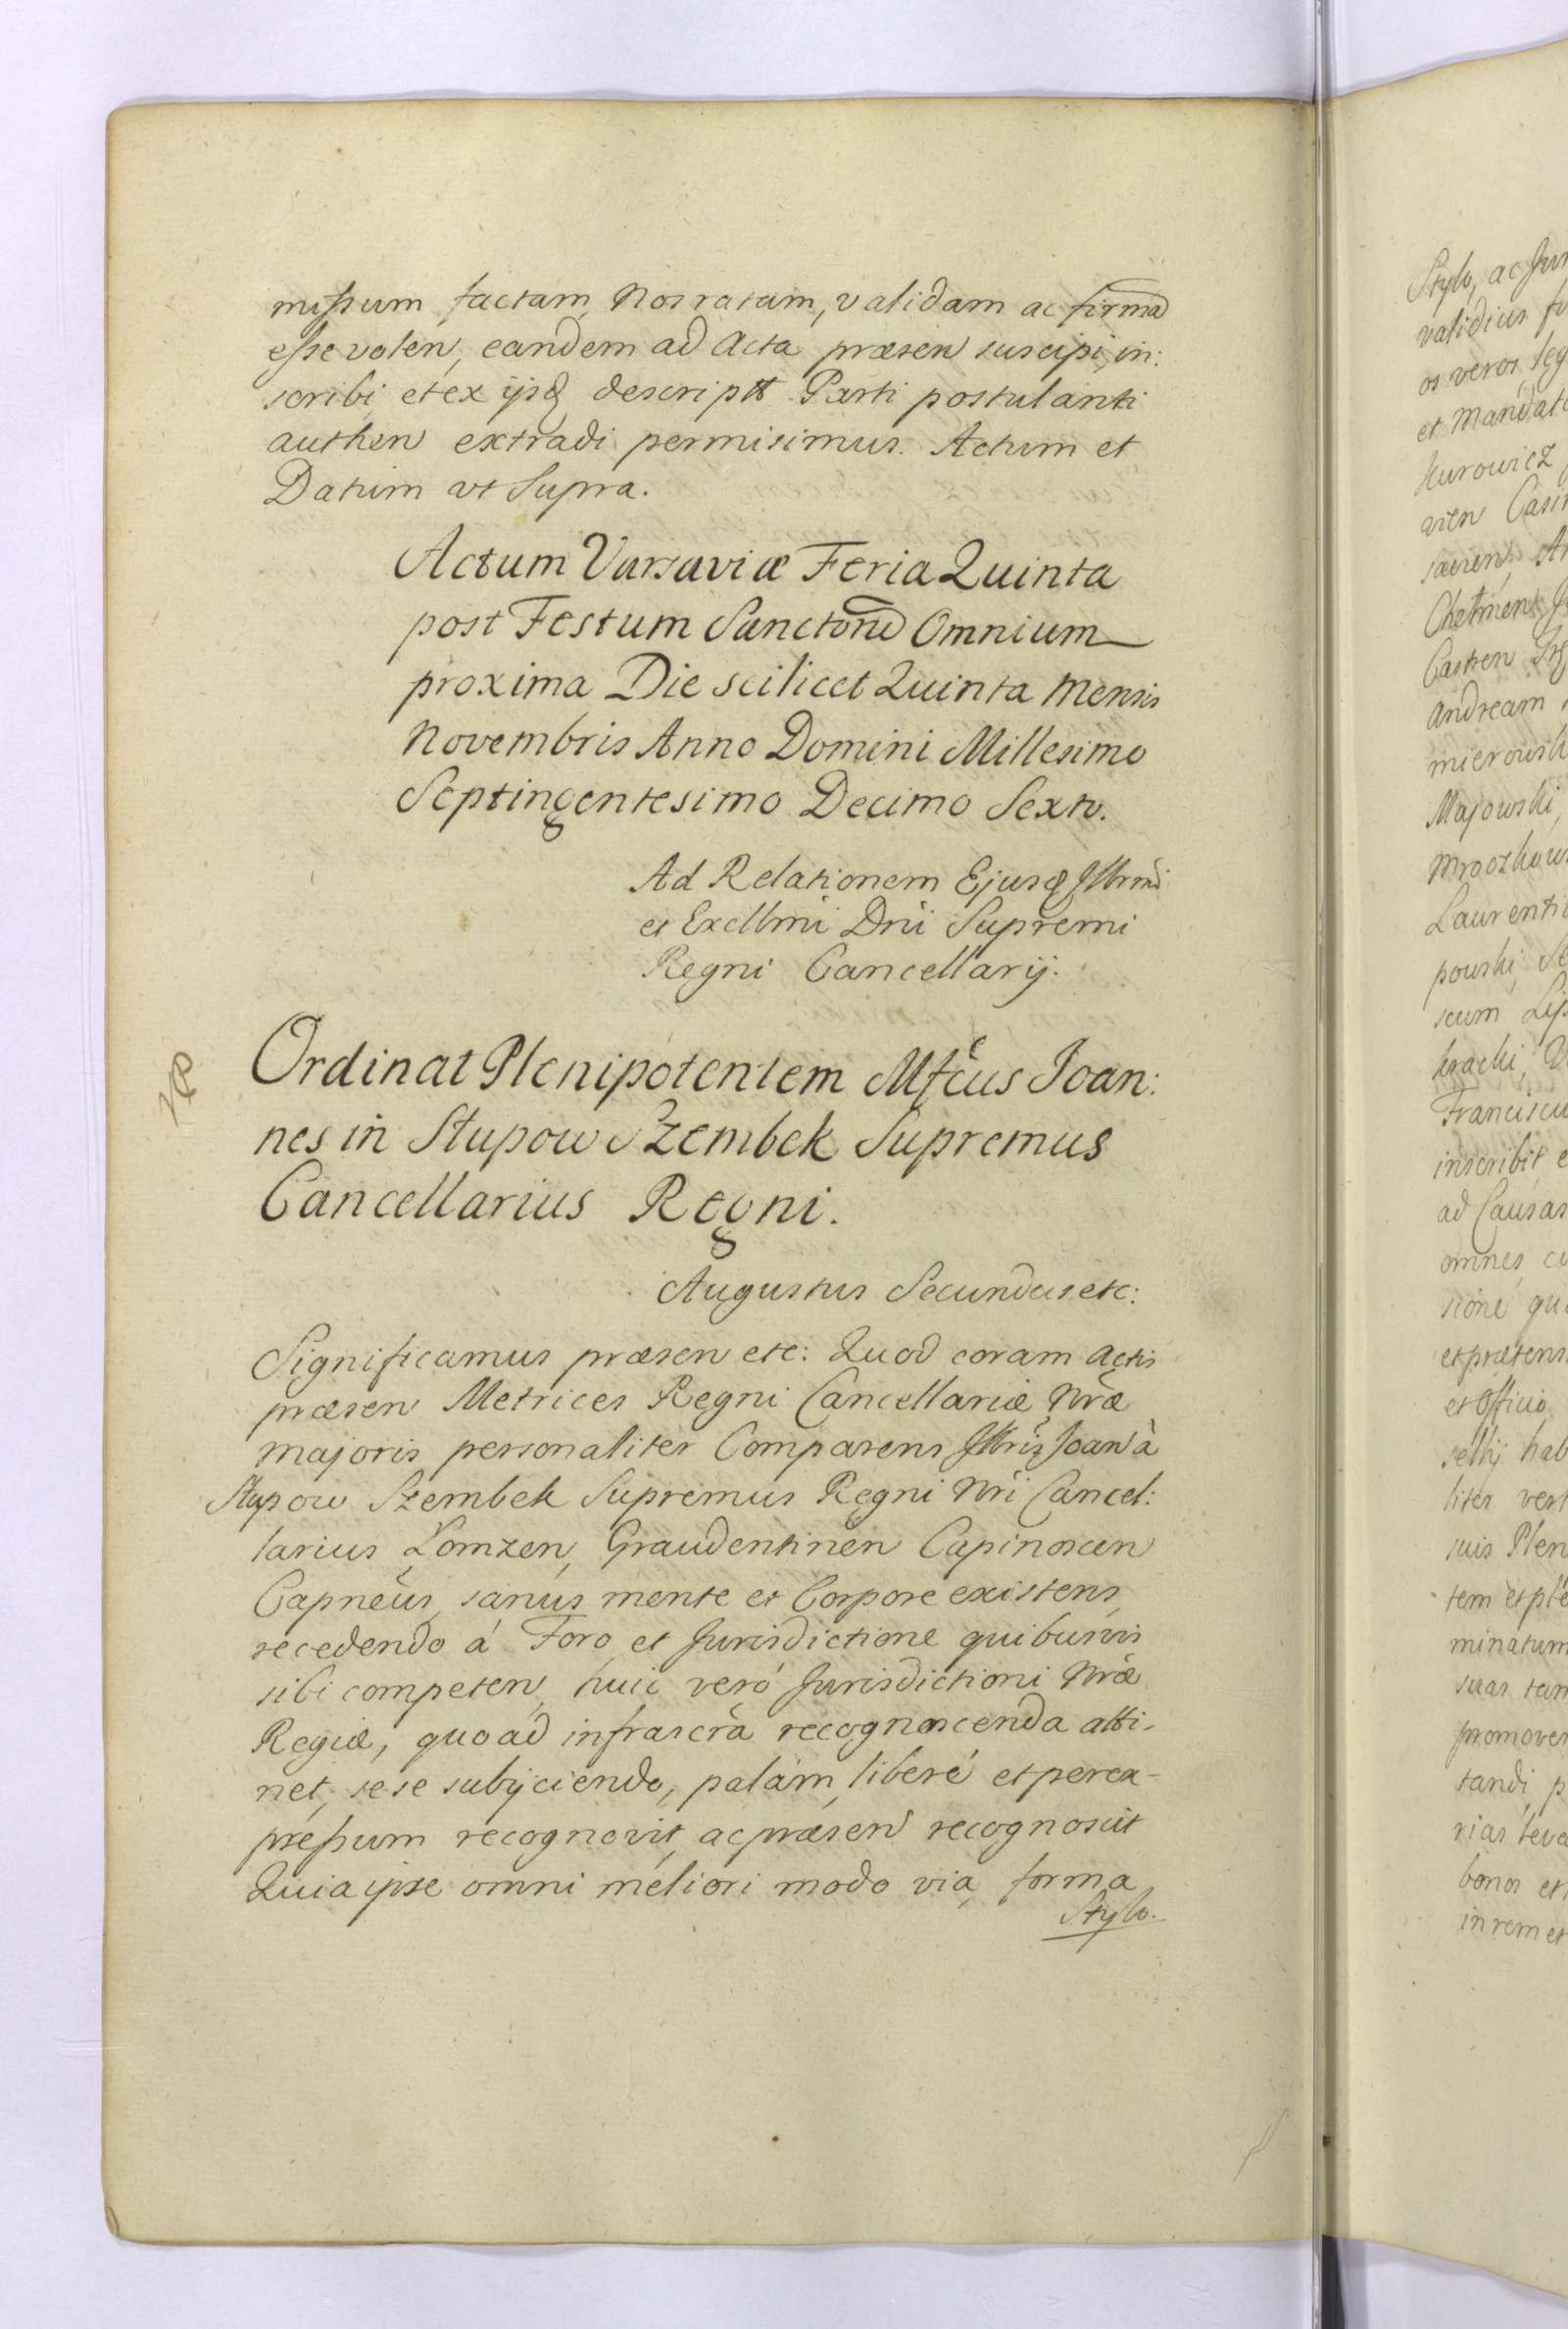 missum factam, Nos ratam, validam ac firmã
esse volen, eandem ad Acta præsen suscipi, in:
scribi et ex ijsq descriptt Parti postulanti
authen extradi permisimus. Actum et
Datum vt Supra.
Actum Varsaviæ Feria Quinta
post Festum Sanctorũ Omnium
proxima Die scilicet Quinta Mensis
Novembris Anno Domini Millesimo
Septingentesimo Decimo Sexto.
Ad Relationem Ejusq Illrmi
et Excllmi Dni Supremi
Regni Cancellarij.
Ordinat Plenipotentem Mfcus Joan:
nes in Słupow Szembek Supremus
Cancellarius Regni.
Augustus Secundus etc:
Significamus præsen etc: Quod coram Actis
præsen Metrices Regni Cancellariæ Nræ
majoris personaliter Comparens Illris Joan à
Słupow Szembek Supremus Regni Nri Cancel:
larius Łomzen, Graudentinen Capinoscen
Capneus, sanus mente et Corpore existens,
recedendo á Foro et Jurisdictione quibusvis
sibi competen, huic veró Jurisdictioni Nræ
Regiæ, quoad infrascra recognoscenda atti-
net, sese subijciendo, palám, liberé et per ex-
pressum recognovit, ac præsen recognoscit
Quia ipse omni meliori modo via, forma,
Stylo.
Stylo, ac Jur
validius
os veros, leg
et Mandat
Casi
Castren
Andream
Majowski,
Laurenti
powski
scum Lip
Franciscu
inscribit e
ad Causas
omnes, cu
sione qu
et prætens
et Officio
hab
liter vert
suis Plen
tem et ple
minatum
suas tam
promover
tandi, p
rias leva
bonos et
in rem et